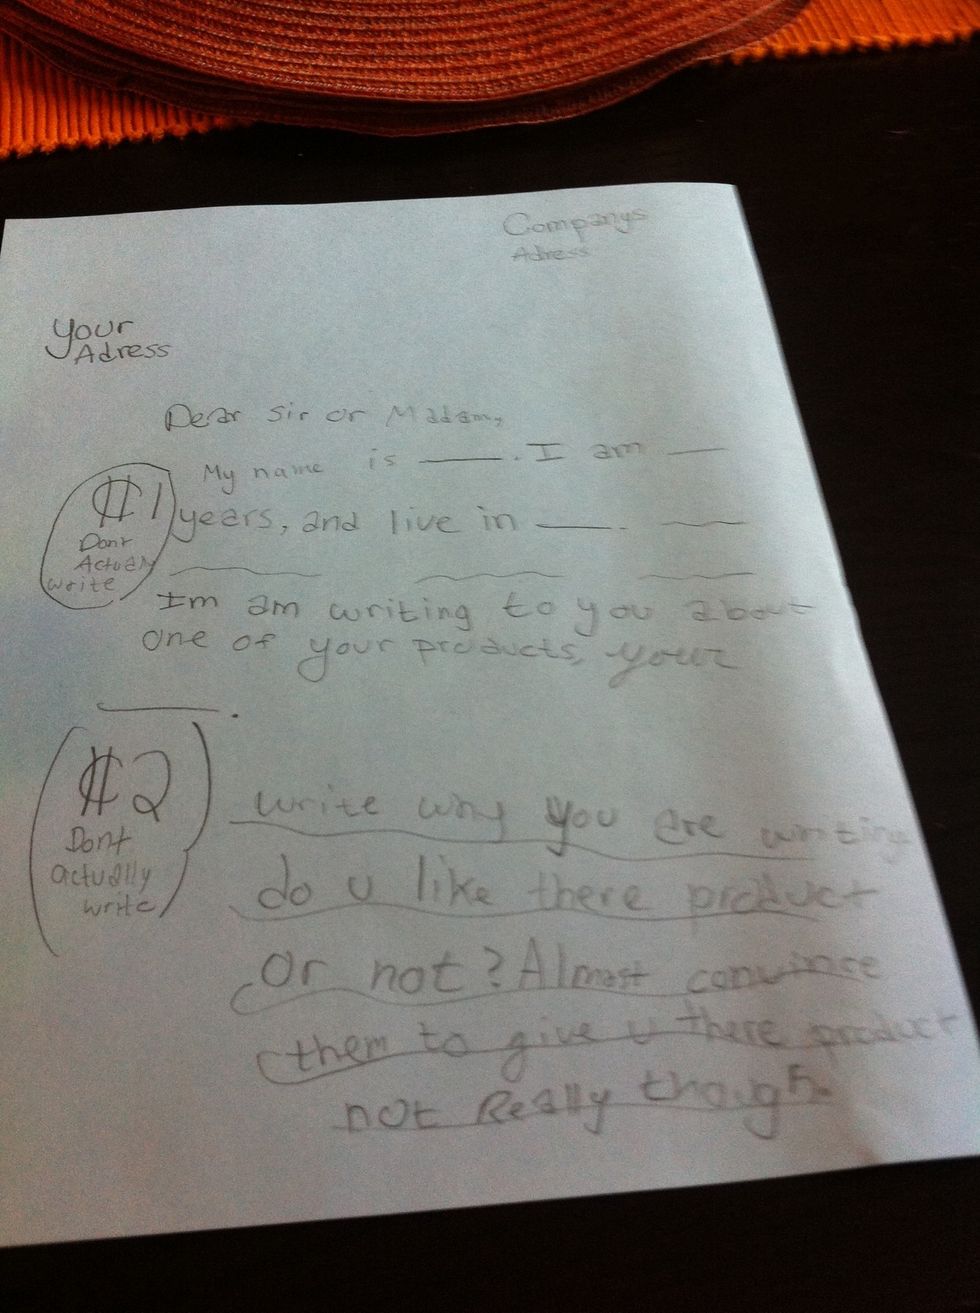 Companys
Adress
Your
Adress
Dear Sir or Madam,
My name is ___. I am ___
#1 years, and live in ___.
Dont
Actually
write
Im am writing to you about
one of your products, your
___.
#2
Dont
actually
write
write why you are writing
do u like there product
or not? Almost convince
them to give u there product
not Really though.